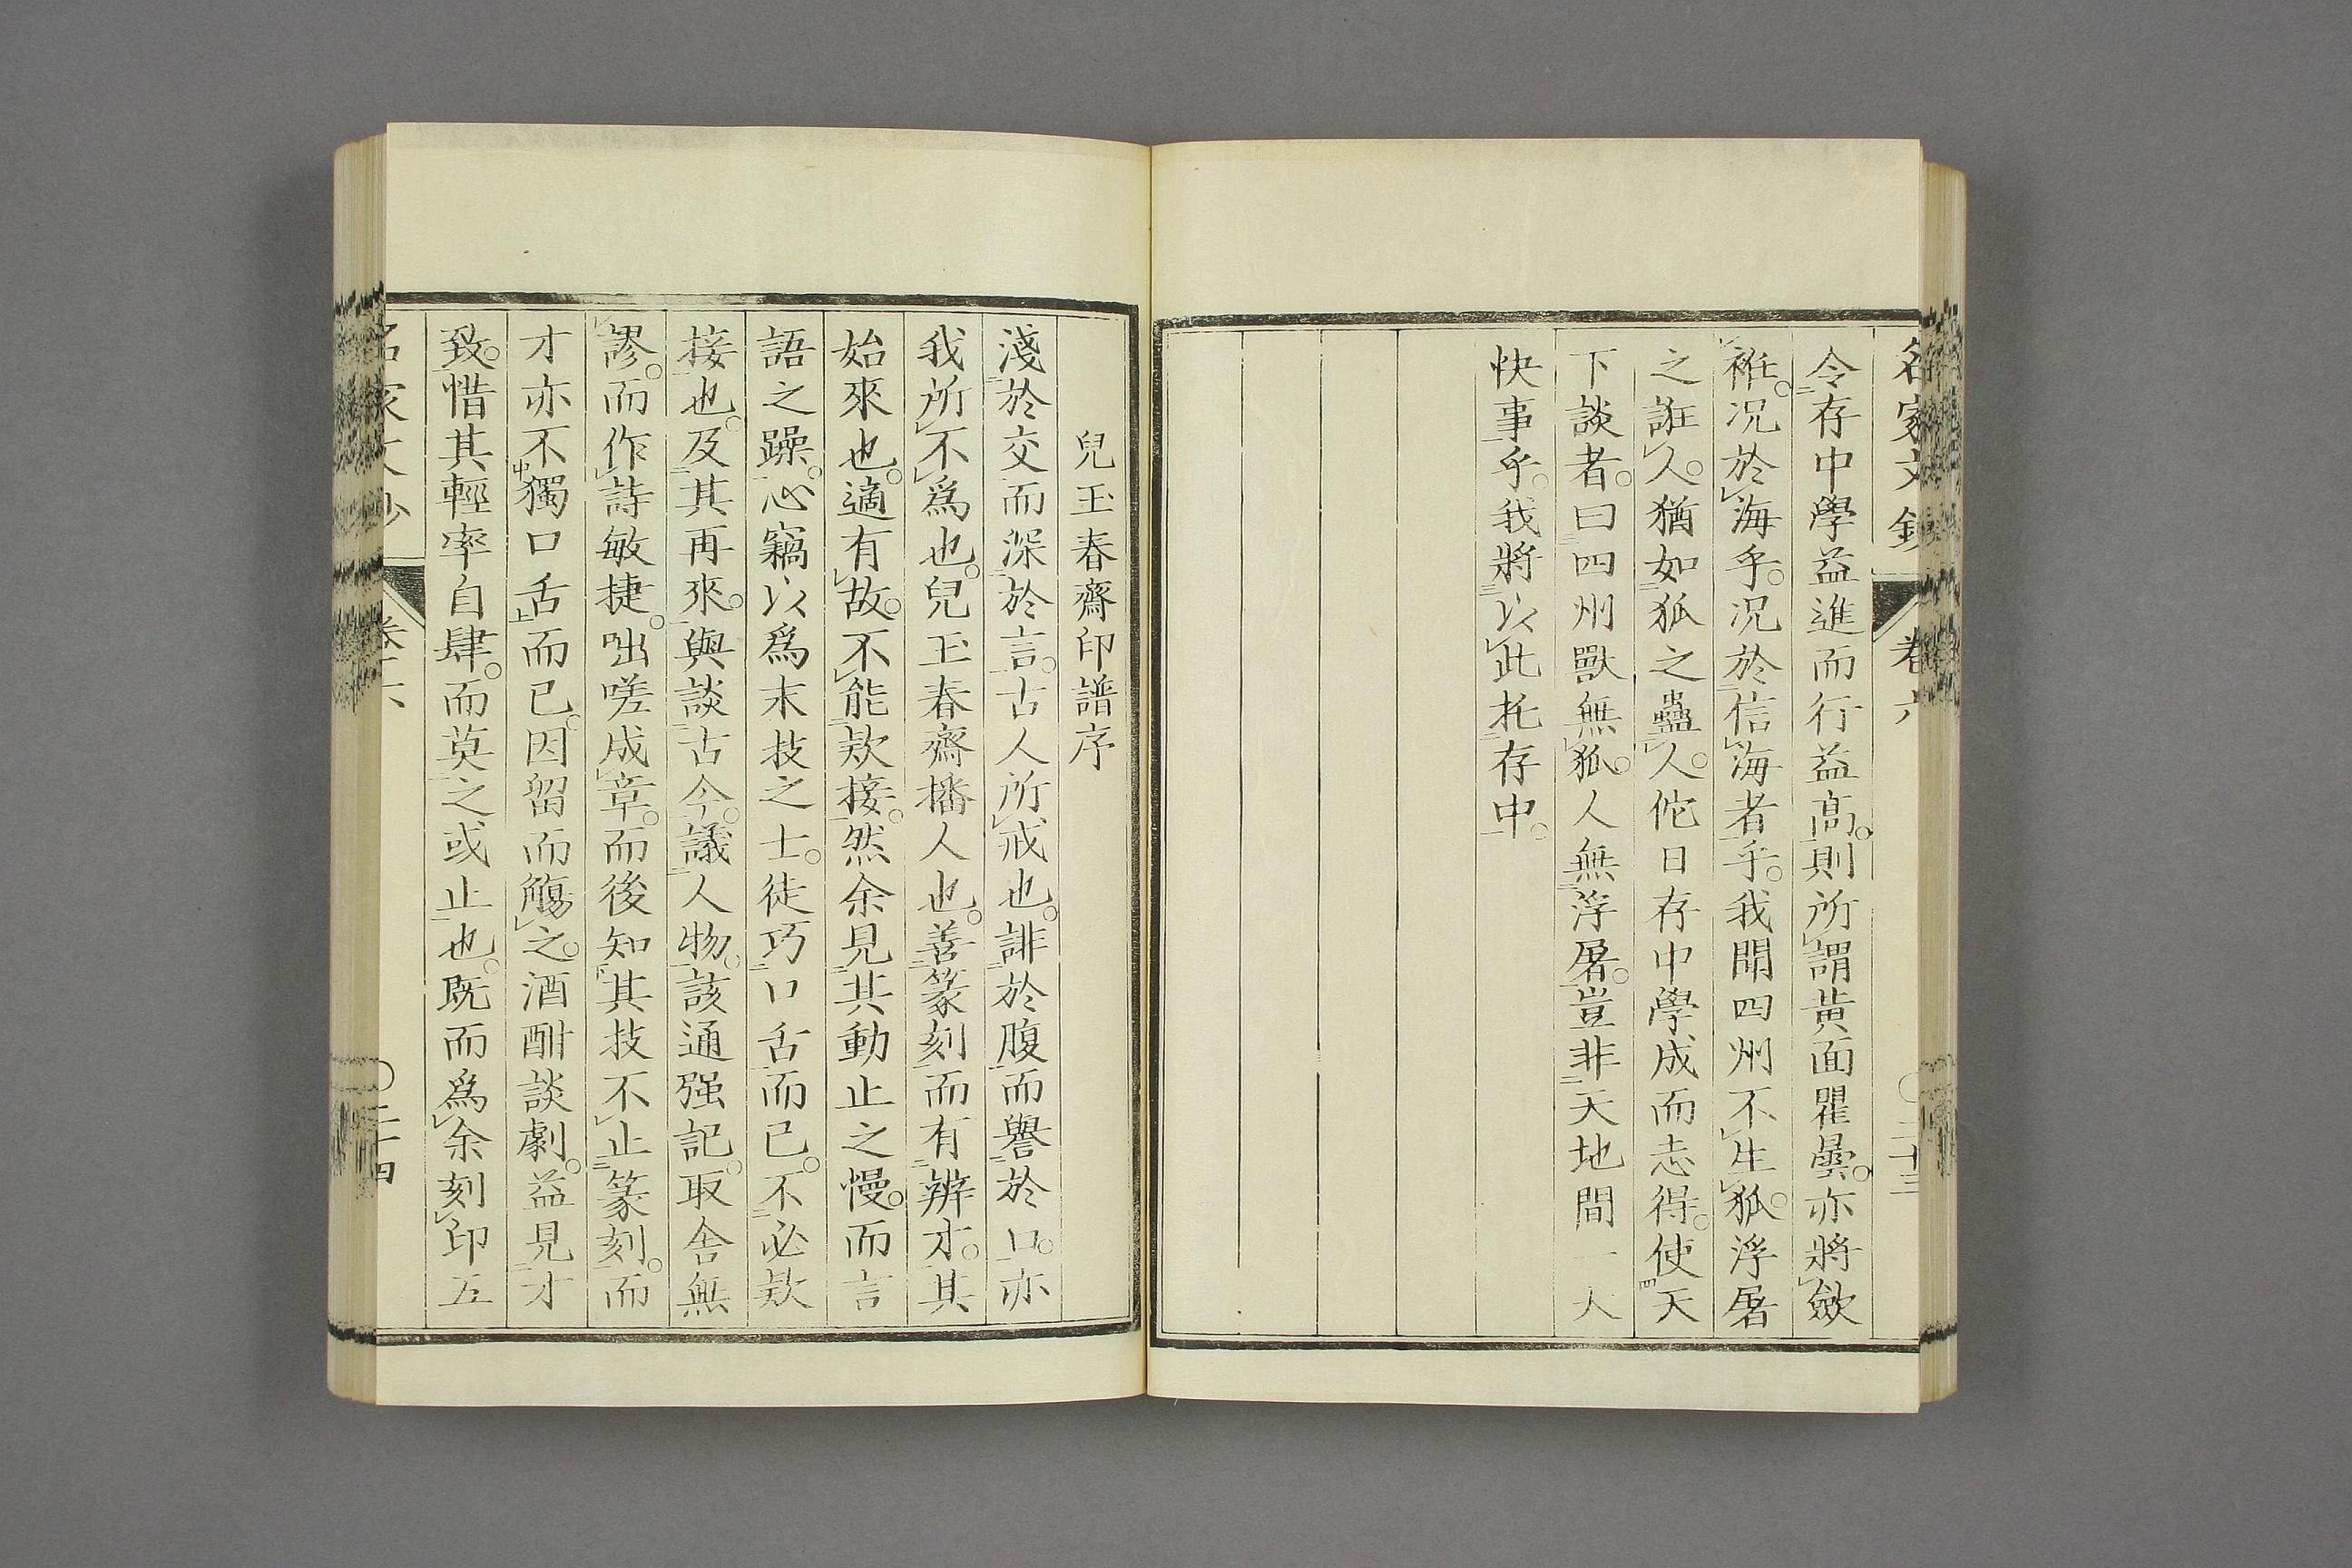 名家文鈔 卷六 〇二十三
令存中學益進而行益高。則所謂黄面瞿曇。亦將斂
袵。況於海乎。況於信海者乎。我聞四州不生狐。浮屠
之誑人。猶如狐之蠱人。佗日存中學成而志得。使天
下談者。曰四州獸無狐。人無浮屠。豈非天地間一大
快事乎。我將以此托存中。
兒玉春齋印譜序
淺於交而深於言。古人所戒也。誹於腹而譽於口。亦
我所不爲也。兒玉春齋播人也。善篆刻而有辨才。其
始來也。適有故。不能欵接。然余見其動止之慢。而言
語之躁。心竊以爲末技之士。徒巧口舌而已。不必欵
接也。及其再來。與談古今。議人物。該通强記。取舍無
謬。而作詩敏捷。咄嗟成章。而後知其技不止篆刻。而
才亦不獨口舌而已。因留而觴之。酒酣談劇。益見才
致。惜其輕率自肆。而莫之或止也。既而爲余刻印五
名家文鈔 卷六 〇二十四